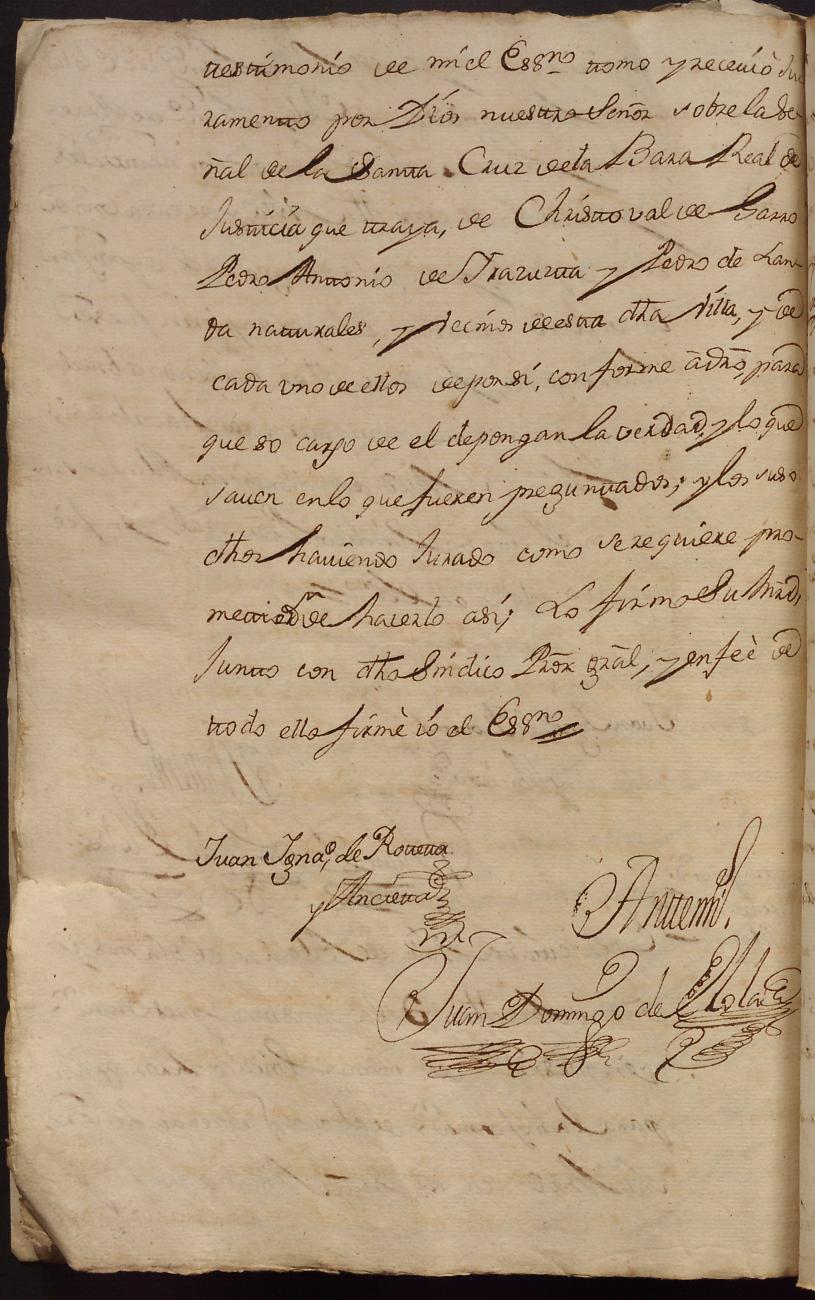 testimonio de mi el Essno tomo y recevio Ju
ramento por Dios nuestro Señor sobre la Se
ñal de la Santa Cruz de la Bara Real de
Justicia que traya, de Christoval de Garro
Pedro Antonio de Irazuzta y Pedro de Lan
da naturales, y vecinos de esta dha Villa, y de
cada uno de ellos de por si, conforme a dro, para
que so cargo de el depongan la verdad, y lo que
saven en lo que fueren preguntados; y los suso
dhos haviendo Jurado como se requiere pro-
metieron de hacerlo asi; Lo firmo Su Mrd,
Junto con dho Sindico Pror gral, y en feè de
todo ello firmè io el Essno
Juan Ignaº, de Rotetta
y Ancietta
Anttemi.
Juan Domingo de